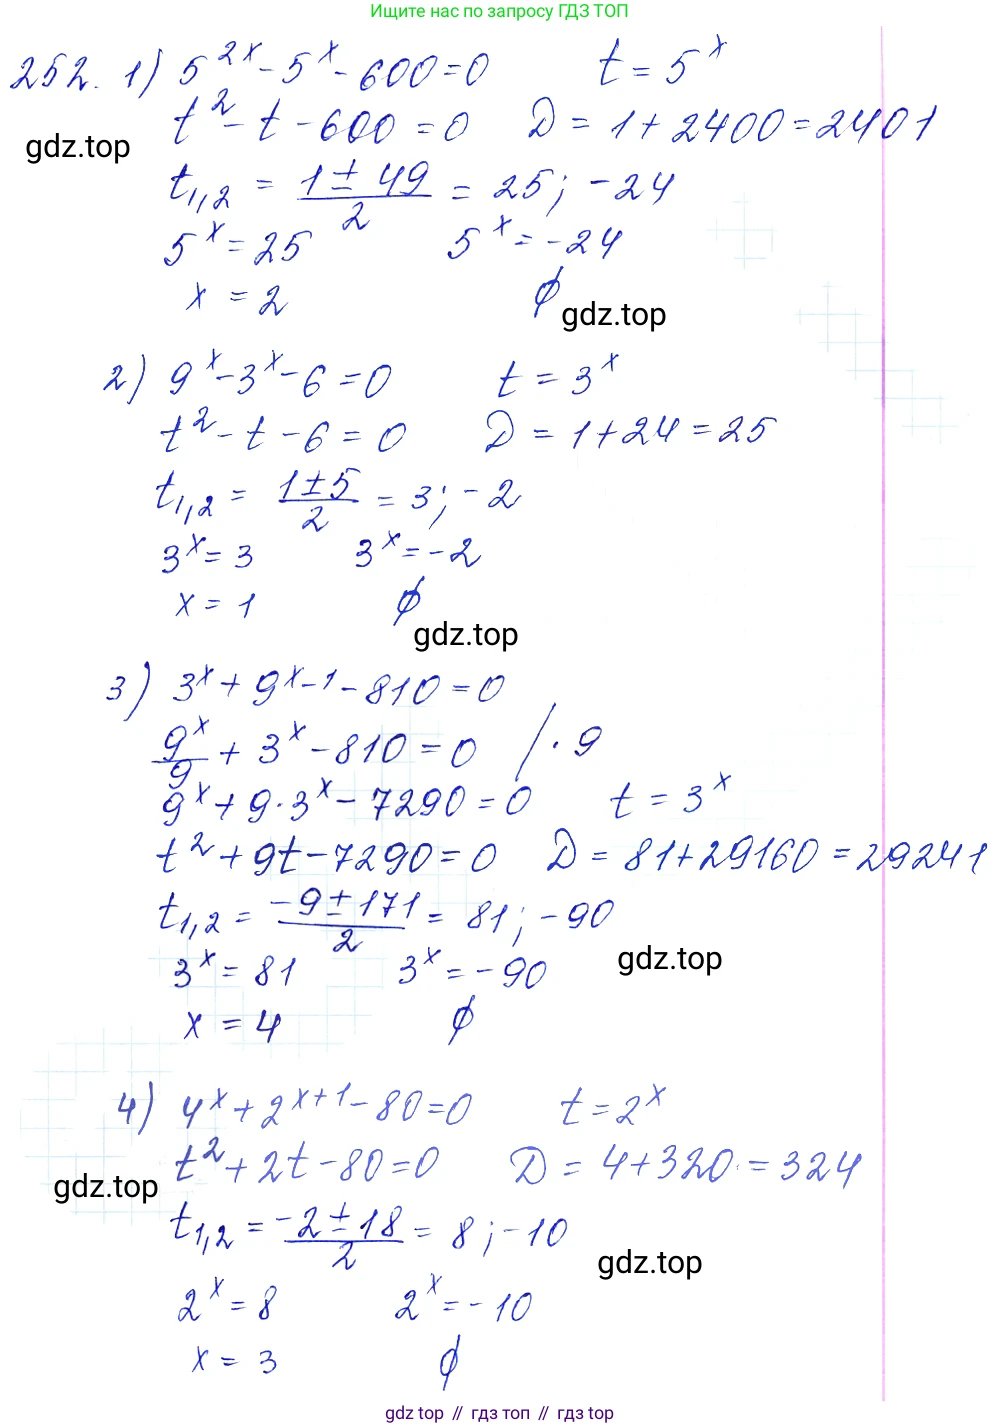 Ищите нас по запросу ГДЗ ТОП
252. 1) 5^{2x} - 5^x - 600 = 0   t = 5^x
t^2 - t - 600 = 0   D = 1 + 2400 = 2401
gdz.top
t_{1,2} = \frac{1 ± 49}{2} = 25; -24
5^x = 25   5^x = -24
x = 2   ∅
gdz.top
2) 9^x - 3^x - 6 = 0   t = 3^x
t^2 - t - 6 = 0   D = 1 + 24 = 25
t_{1,2} = \frac{1 ± 5}{2} = 3; -2
3^x = 3   3^x = -2
x = 1   ∅
gdz.top
3) 3^x + 9^{x-1} - 810 = 0
\frac{9^x}{9} + 3^x - 810 = 0   / · 9
9^x + 9 · 3^x - 7290 = 0   t = 3^x
t^2 + 9t - 7290 = 0   D = 81 + 29160 = 29241
t_{1,2} = \frac{-9 ± 171}{2} = 81; -90
gdz.top
3^x = 81   3^x = -90
x = 4   ∅
4) 4^x + 2^{x+1} - 80 = 0   t = 2^x
t^2 + 2t - 80 = 0   D = 4 + 320 = 324
gdz.top
t_{1,2} = \frac{-2 ± 18}{2} = 8; -10
gdz.top
2^x = 8   2^x = -10
x = 3   ∅
gdz top // гдз топ // гдз top